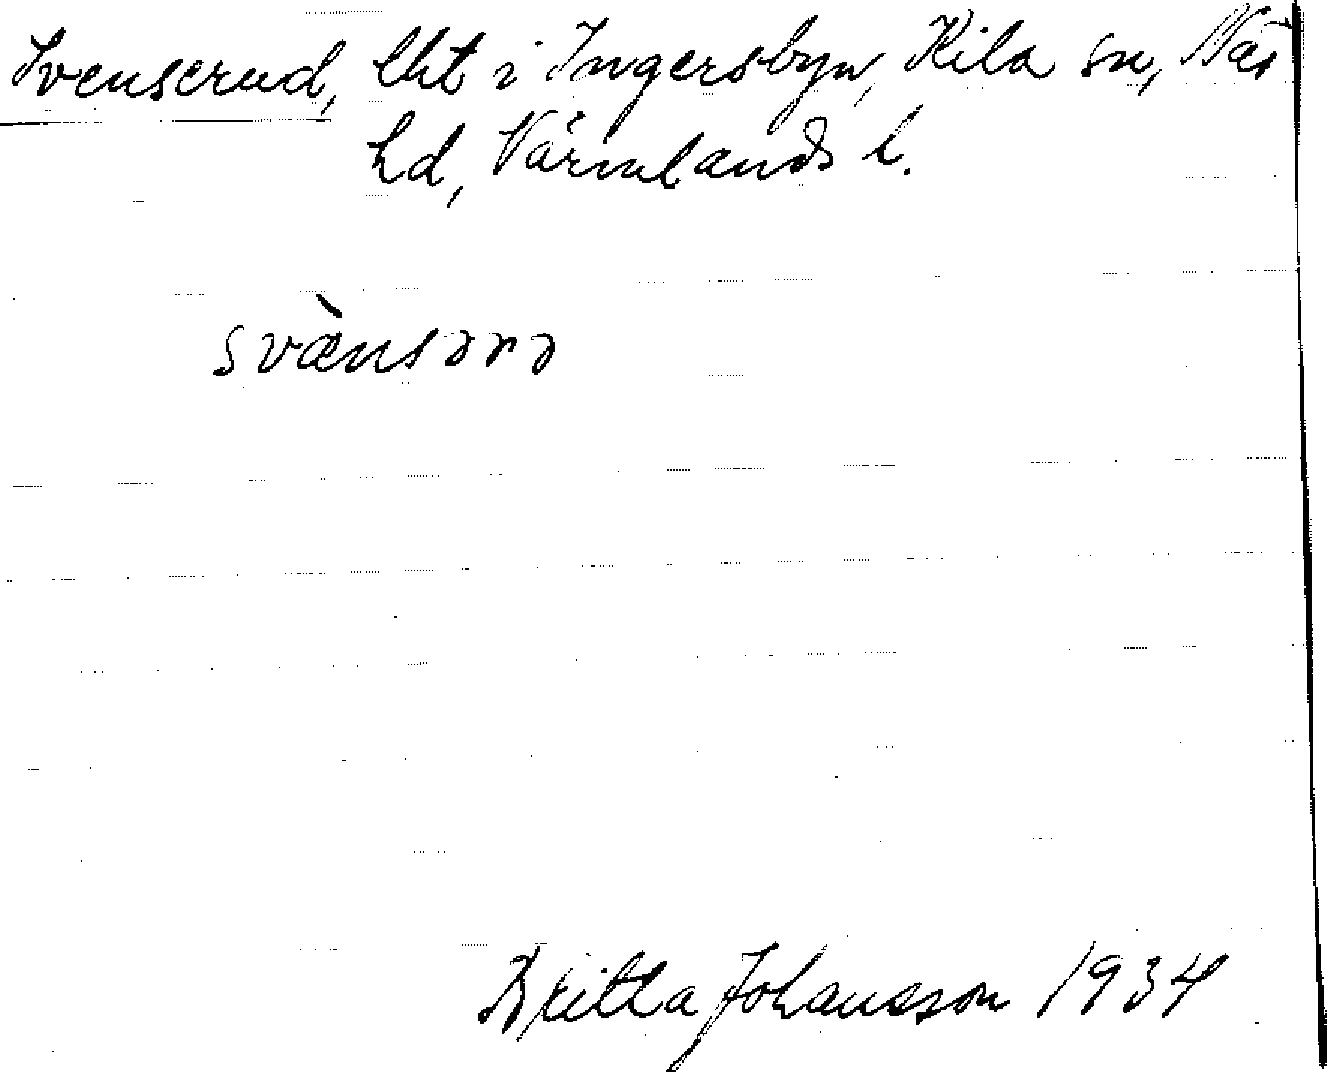 Svenserud, lht i Ingersbyn, Kila sn, Näs
hd, Värmlands l.
svæ̀nsərə
Britta Johansson 1934